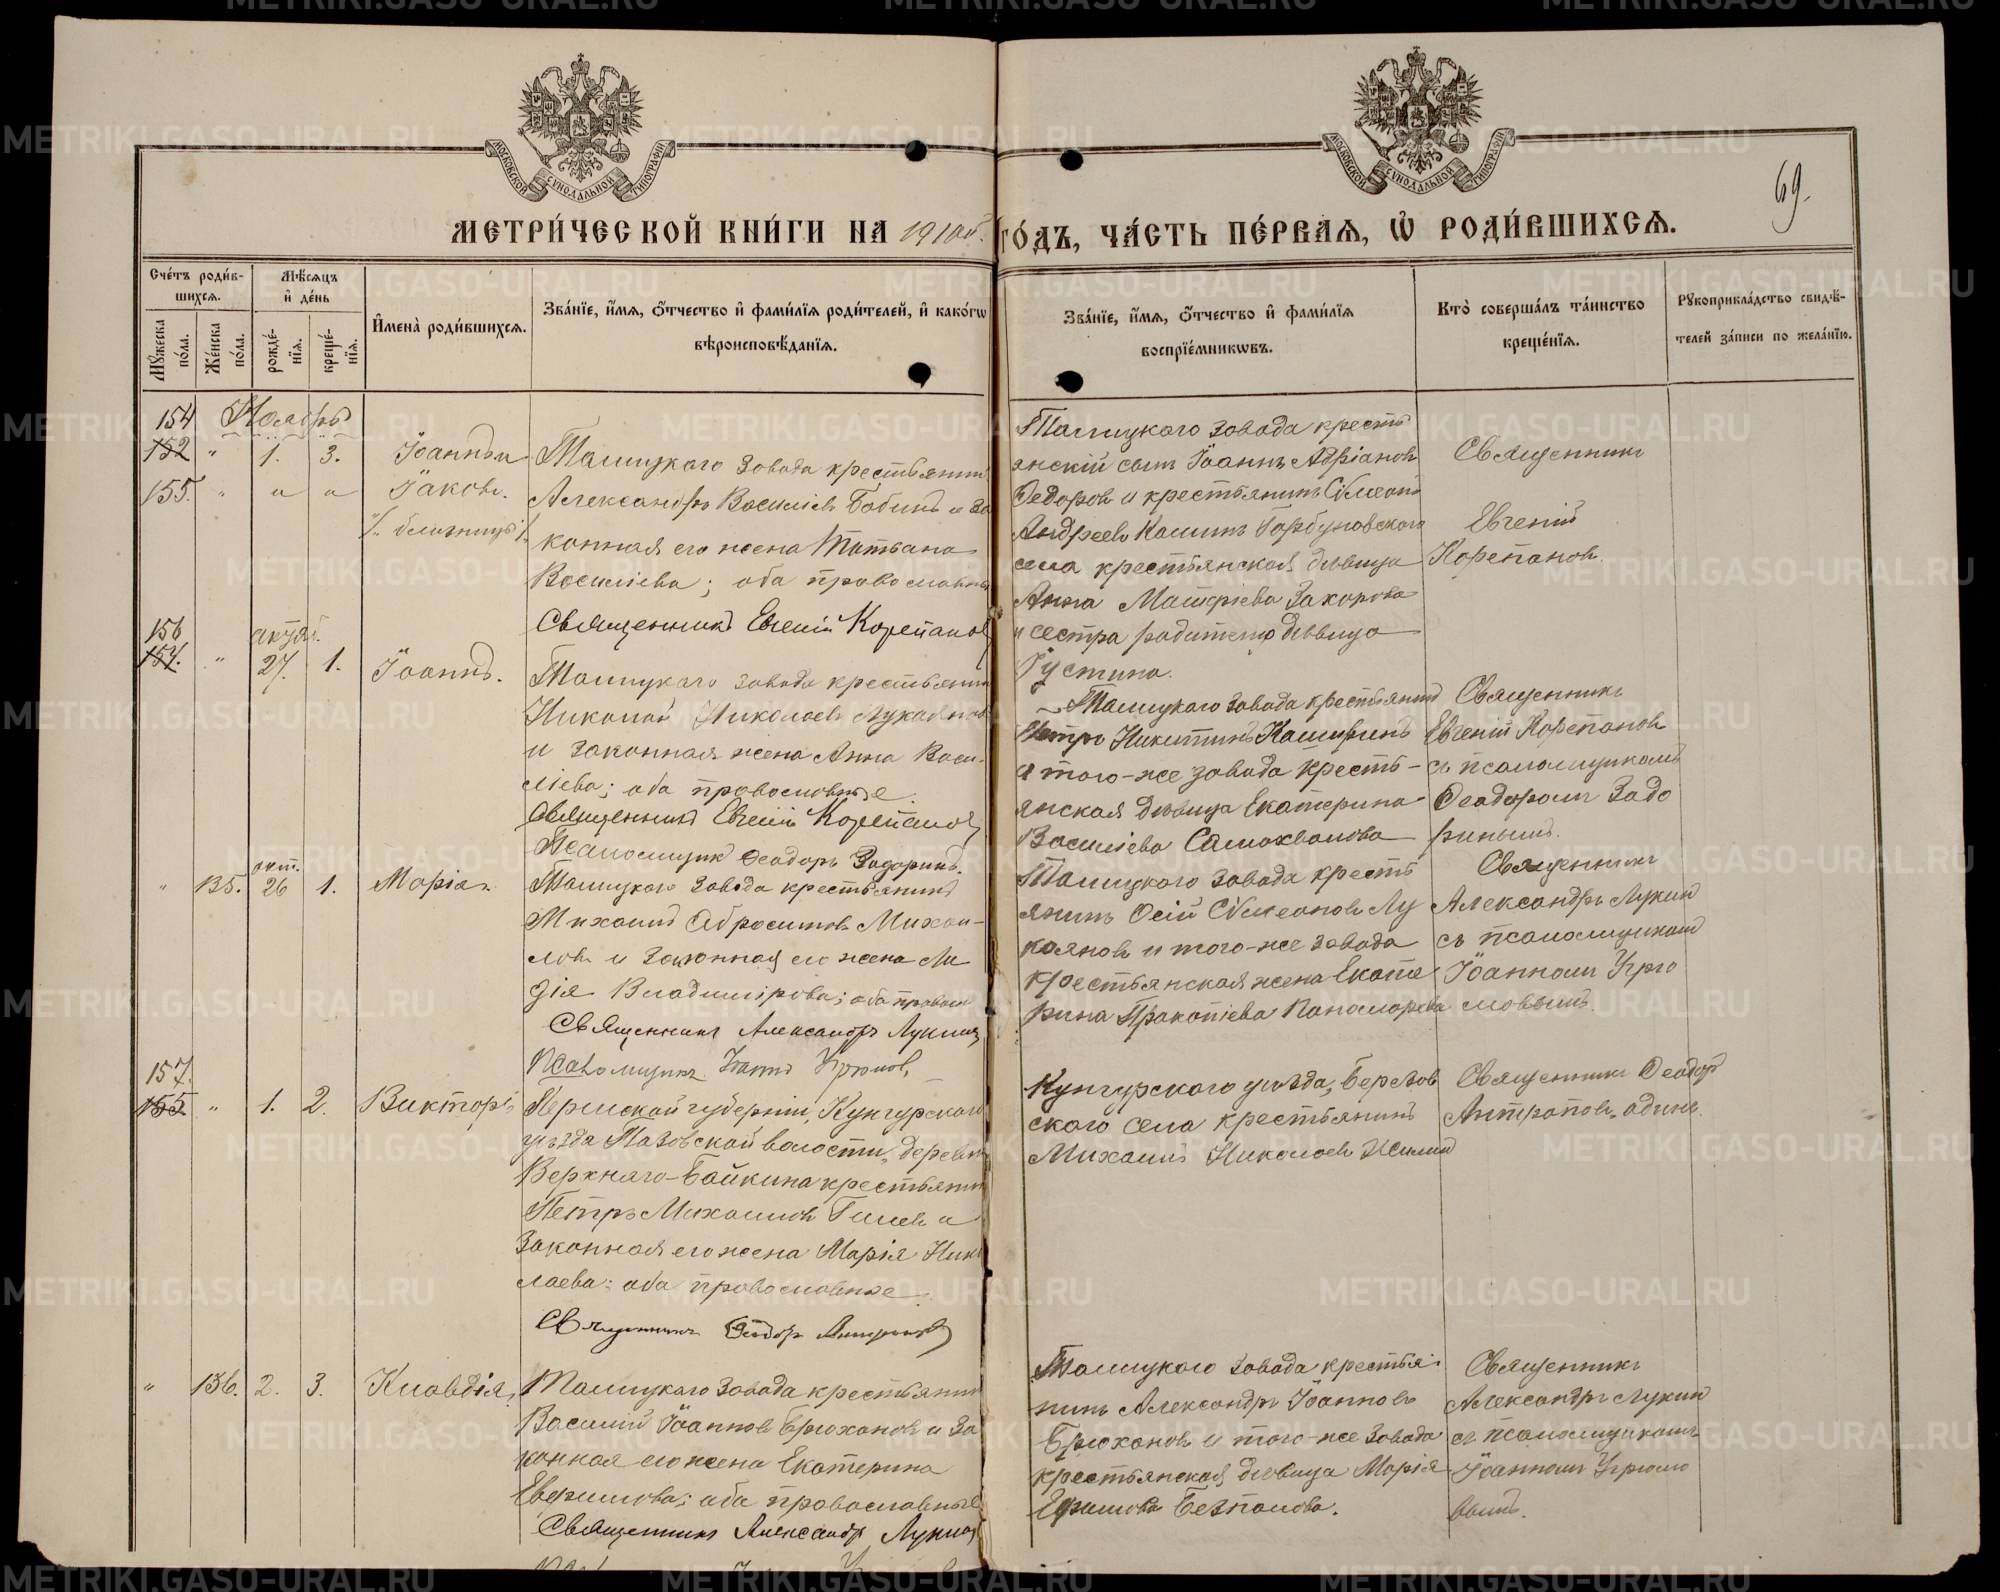 МОСКОВСКОЙ СУНОДАЛЬНОЙ ТИПОГРАФІИ
МОСКОВСКОЙ СУНОДАЛЬНОЙ ТИПОГРАФІИ
69.
МЕТРИ́ЧЕСКОЙ КНИ́ГИ НА 1910й. ГО́ДЪ, ЧА́СТЬ ПЕ́РВАЯ, Ѡ҆ РОДИ́ВШИХСЯ.
Сче́тъ роди́вшихся.
Мѣ́сяцъ и҆ де́нь
Мꙋ́жеска по́ла.
Же́нска по́ла.
рожде́нїя.
креще́нїя.
И҆мена̀ роди́вшихся.
Зва́нїе, и҆́мя, ѻ҆́тчество и҆ фами́лїя роди́телей, и҆ како́гѡ
вѣроисповѣ́данїя.
Зва́нїе, и҆́мя, ѻ҆́тчество и҆ фами́лїя
воспрїе́мникѡвъ.
Кто̀ соверша́лъ та́инство
креще́нїя.
Рꙋкоприкла́дство свидѣ́-
телей за́писи по жела́нїю.
154 Ноябрь
152 " 1. 3. Іоаннъ и
155. " " " Іаковъ.
/. близнецы ./
Талицкаго завода крестьянинъ
Александръ Васильевъ Бабинъ и за
конная его жена Татьяна
Васильева; оба православные
Священникъ Евгеній Корепановъ
Талицкаго завода кресть
янскій сынъ Іоаннъ Адріановъ
Федоровъ и крестьянинъ Сѵмеонъ
Андреевъ Горбуновскаго
села крестьянская дѣвица
Анна Захарова
и сестра родителю дѣвица
Іустина.
Священникъ
Евгеній
Корепановъ.
156 октяб.
154. " 27. 1. Іоаннъ.
Талицкаго завода крестьянинъ
Николай Николаевъ Лукояновъ
и законная жена Анна Васи-
ліева; оба православные.
Священникъ Евгеній Корепановъ
Псаломщик Ѳеодоръ Задоринъ.
Талицкаго завода крестьянинъ
Петръ Никитинъ Каширинъ
и того-же завода кресть-
янская дѣвица Екатерина
Василіева Самохвалова
Священникъ
Евгеній Корепановъ
съ псаломщикомъ
Ѳеодоромъ Задо
ринымъ.
окт.
" 135. 26 1. Марія.
Талицкаго завода крестьянинъ
Михаилъ Абросимовъ Михаи-
ловъ и законная его жена Ли
дія Владимірова; оба правосл
Священникъ Александръ Лукинъ
Псаломщикъ Іоаннъ Угрюмовъ,
Талицкаго завода кресть
янинъ Осій Сѵмеоновъ Лу
кояновъ и того-же завода
крестьянская жена Екате
рина Прокопіева Пономарева
Священникъ
Александръ Лукинъ
съ псаломщикомъ
Іоанномъ Угрю
мовымъ.
157.
155. " 1. 2. Викторъ
Пермской губерніи, Кунгурскаго
уѣзда Мазовской волости, деревни
Верхняго-Байкина крестьянинъ
Петръ Михаиловъ Гилевъ и
законная его жена Марія Нико
лаева; оба православные.
Священникъ Ѳеодоръ Антроповъ
Кунгурскаго уѣзда, Березов
скаго села крестьянинъ
Михаилъ Николаевъ Жилинъ
Священникъ Ѳеодоръ
Антроповъ одинъ.
" 136. 2. 3. Клавдія.
Талицкаго завода крестьянинъ
Василій Іоанновъ Брюхановъ и за
конная его жена Екатерина
Ефимова; оба православные
Священникъ Александръ Лукинъ
Талицкаго завода крестья-
нинъ Александръ Іоанновъ
Брюхановъ и того-же завода
крестьянская дѣвица Марія
Ефимова Безпалова.
Священникъ
Александръ Лукинъ
съ псаломщикомъ
Іоанномъ Угрюмо
вымъ.
METRIKI.GASO-URAL.RU